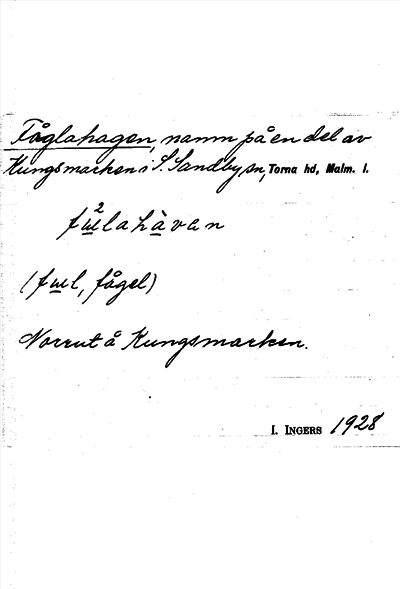 Fåglahagen, namn på en del av
Kungsmarken i S. Sandby sn, Torna hd, Malm. l.
fɯ²lahàvan
(fɯl, fågel)
Norrut å Kungsmarken.
I. INGERS 1928